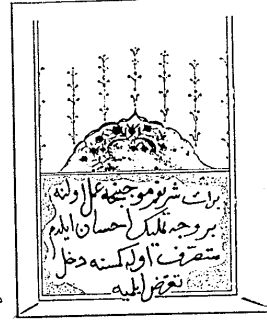 برات شريفم موجبنجه عمل اولنه
بر وجه تمليك احسان ايلدم
متصرف اوله كمسنه دخل
تعرض ايلميه